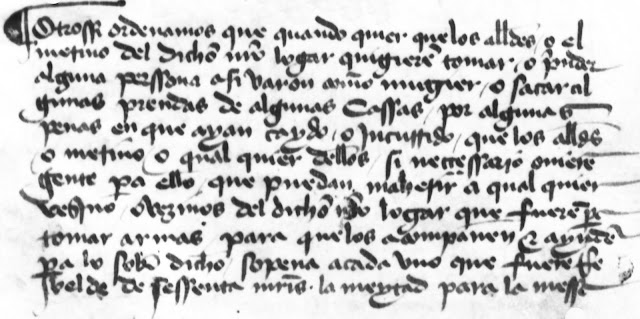 ¶ Otrossi ordenamos que quando quier que los alldes o el
merino del dicho nro logar quisieren tomar o prender
alguna perssona asi varon como mugier o sacar al
gunas prendas de algunas cassas por algunas
penas en que ayan caydo o incurrido que los allds
o merino o qual quier dellos si neccessario oviere
gente pa ello que puedan maherir a qual quier
vesino o vezinos del dicho nro logar que fuere pa
tomar armas para que los acompañen & ayuden
pa lo sobre dicho so pena a cada uno que fuere re
belde de sessenta mrs la meytad para la messa